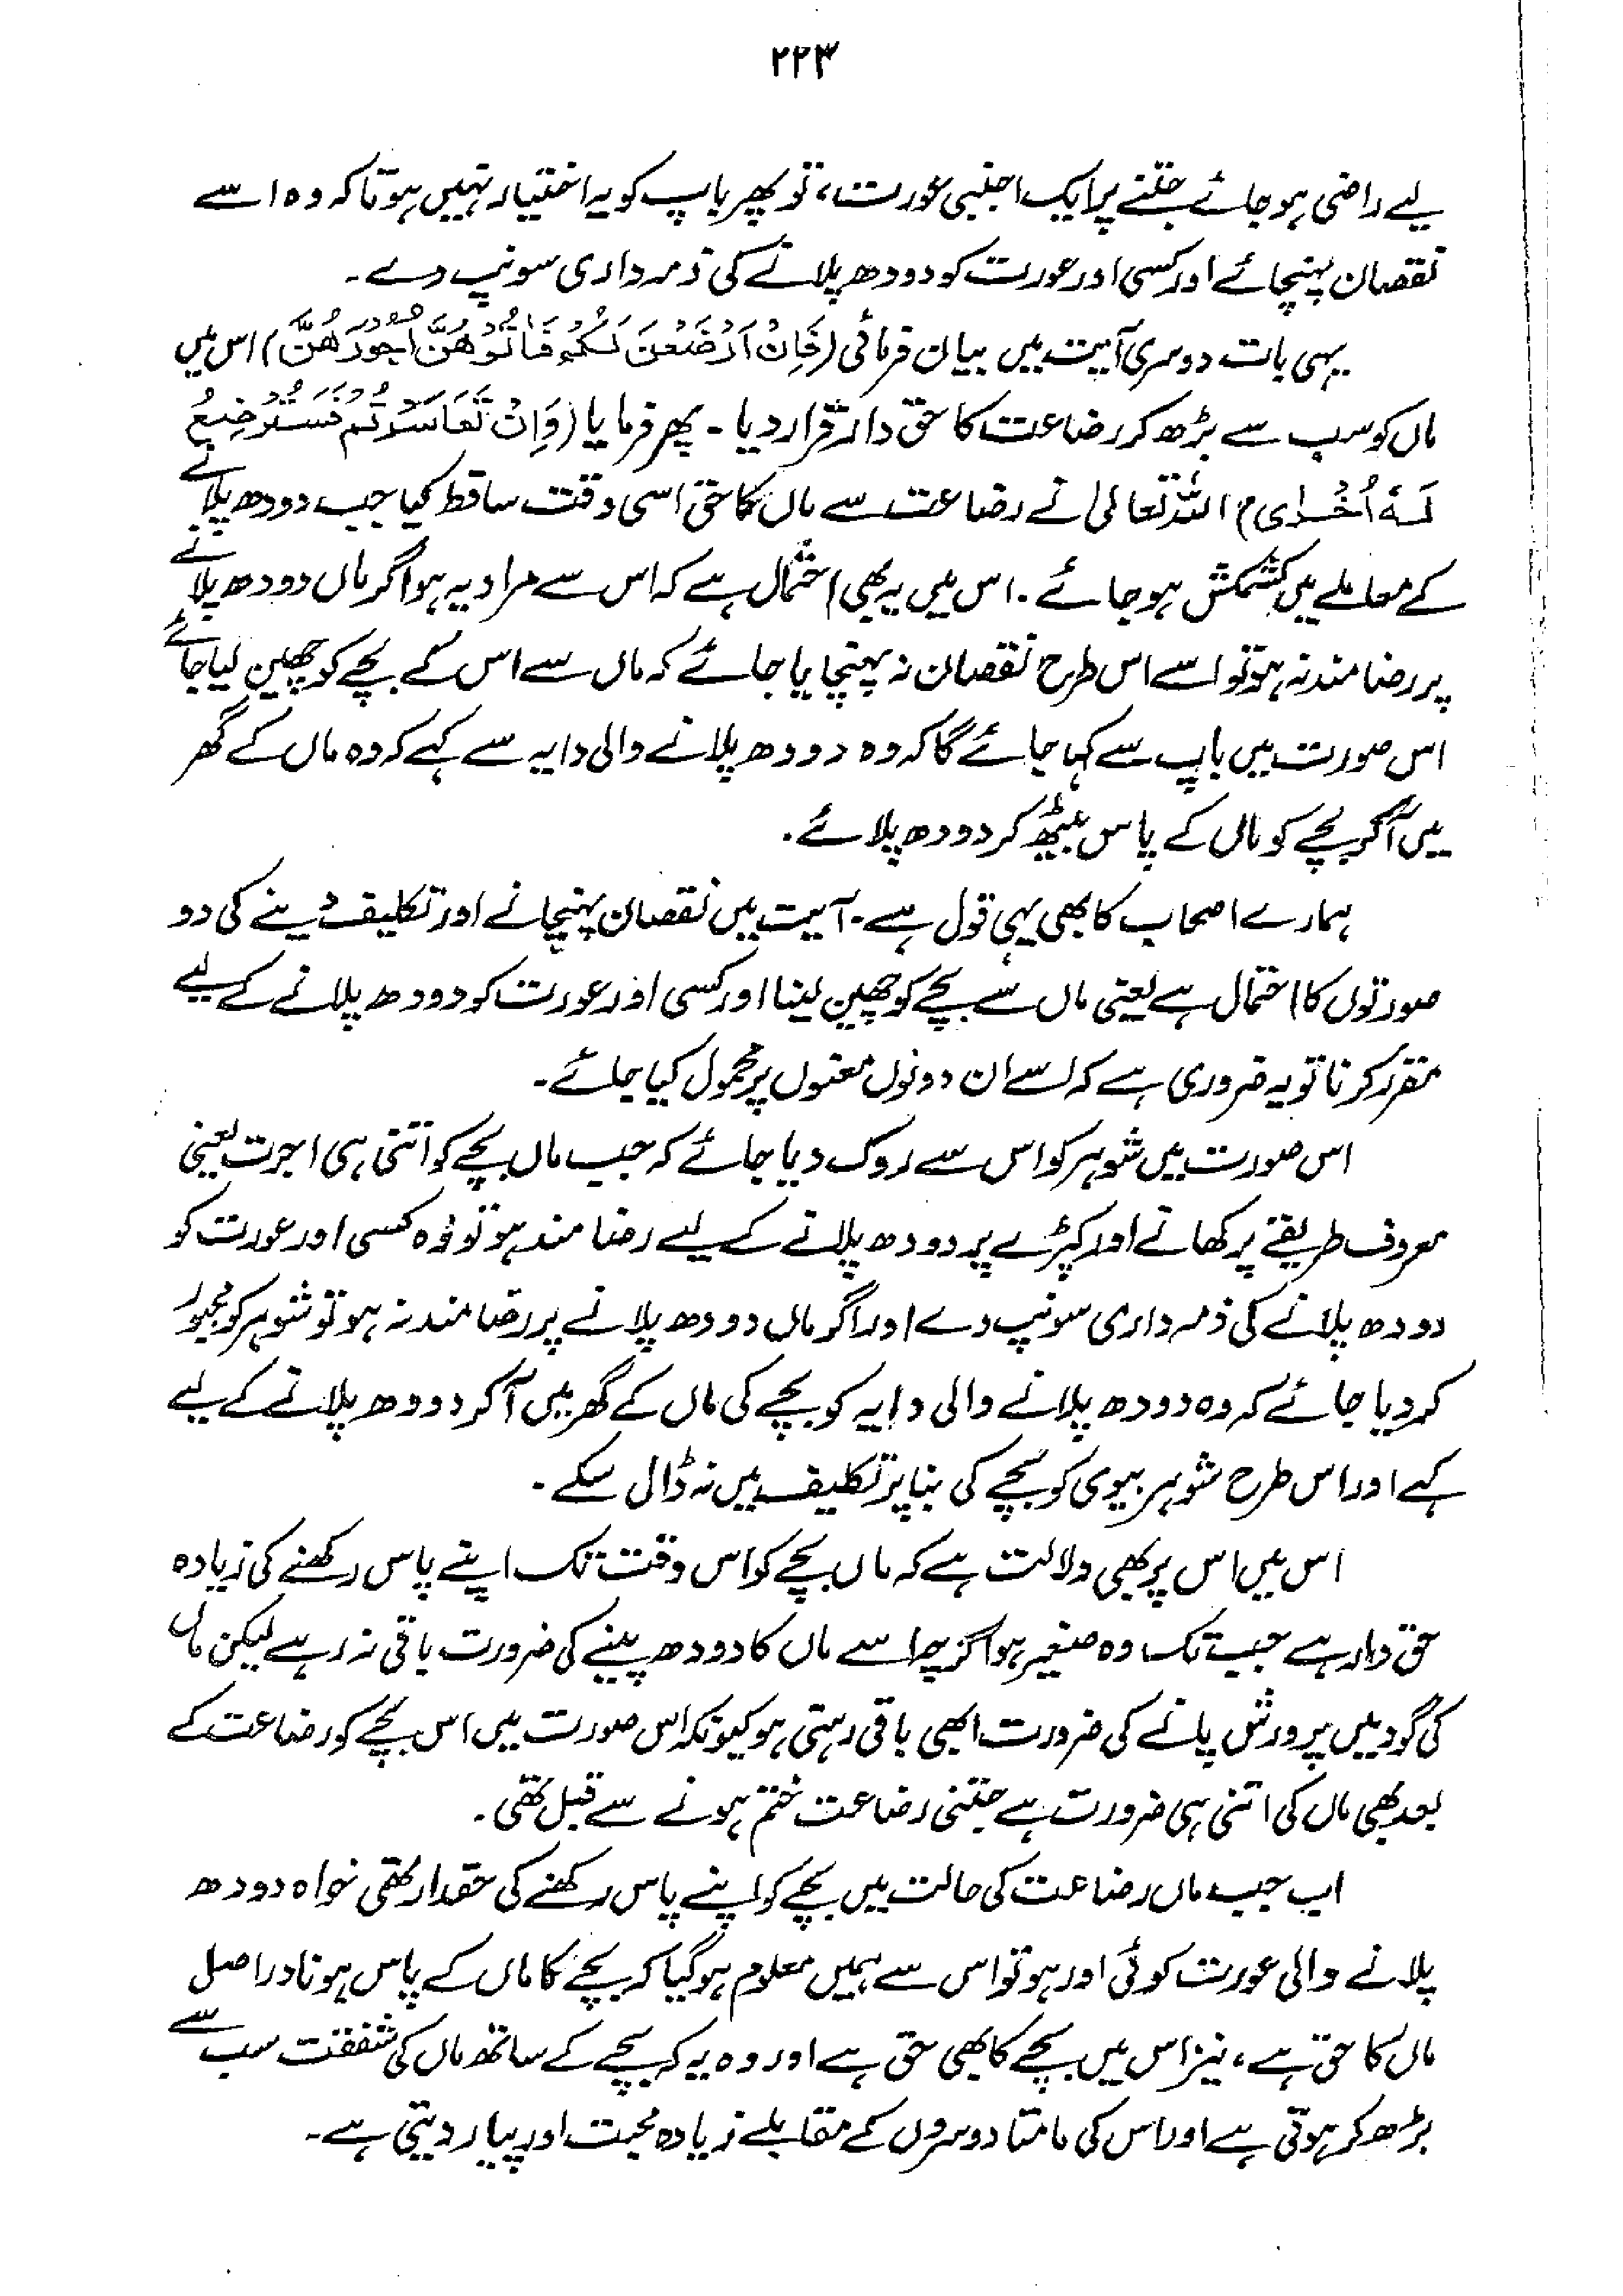 ۲۲۳
لیے راضی ہو جائے جتنے پر ایک اجنبی عورت، تو پھر باپ کو یہ اختیار نہیں ہوتا کہ وہ اسے
نقصان پہنچائے اور کسی اور عورت کو دودھ پلانے کی ذمہ داری سونپ دے۔
یہی بات دوسری آیت میں بیان فرمائی (فَاِنْ اَرْضَعْنَ لَكُمْ فَاٰتُوْهُنَّ اُجُوْرَهُنَّ) اس میں
ماں کو سب سے بڑھ کر رضاعت کا حق دار قرار دیا۔ پھر فرمایا (وَاِنْ تَعَاسَرْتُمْ فَسَتُرْضِعُ
لَهٗ اُخْرٰى) اللہ تعالیٰ نے رضاعت سے ماں کا حق اسی وقت ساقط کیا جب دودھ پلانے
کے معاملے میں کشمکش ہو جائے۔ اس میں یہ بھی احتمال ہے کہ اس سے مراد یہ ہو اگر ماں دودھ پلانے
پر رضامند نہ ہو تو اسے اس طرح نقصان نہ پہنچایا جائے کہ ماں سے اس کے بچے کو چھین لیا جائے
اس صورت میں باپ سے کہا جائے گا کہ وہ دودھ پلانے والی دایہ سے کہے کہ وہ ماں کے گھر
میں آکر بچے کو ماں کے پاس بیٹھ کر دودھ پلائے۔
ہمارے اصحاب کا بھی یہی قول ہے۔ آیت میں نقصان پہنچانے اور تکلیف دینے کی دو
صورتوں کا احتمال ہے یعنی ماں سے بچے کو چھین لینا اور کسی اور عورت کو دودھ پلانے کے لیے
مقرر کرنا تو یہ ضروری ہے کہ اسے ان دونوں معنوں پر محمول کیا جائے۔
اس صورت میں شوہر کو اس سے روک دیا جائے کہ جب ماں بچے کو اتنی ہی اجرت یعنی
معروف طریقے پر کھانے اور کپڑے پر دودھ پلانے کے لیے رضامند ہو تو وہ کسی اور عورت کو
دودھ پلانے کی ذمہ داری سونپ دے اور اگر ماں دودھ پلانے پر رضامند نہ ہو تو شوہر کو مجبور
کر دیا جائے کہ وہ دودھ پلانے والی دایہ کو بچے کی ماں کے گھر میں آکر دودھ پلانے کے لیے
کہے اور اس طرح شوہر بیوی کو بچے کی بنا پر تکلیف میں نہ ڈال سکے۔
اس میں اس پر بھی دلالت ہے کہ ماں بچے کو اس وقت تک اپنے پاس رکھنے کی زیادہ
حق دار ہے جب تک وہ صغیر ہو اگرچہ اسے ماں کا دودھ پینے کی ضرورت باقی نہ رہے لیکن ماں
کی گود میں پرورش پانے کی ضرورت ابھی باقی رہتی ہو کیونکہ اس صورت میں اس بچے کو رضاعت کے
بعد بھی ماں کی اتنی ہی ضرورت ہے جتنی رضاعت ختم ہونے سے قبل تھی۔
اب جب ماں رضاعت کی حالت میں بچے کو اپنے پاس رکھنے کی حقدار تھی خواہ دودھ
پلانے والی عورت کوئی اور ہو تو اس سے ہمیں معلوم ہو گیا کہ بچے کا ماں کے پاس ہونا دراصل
ماں کا حق ہے، نیز اس میں بچے کا بھی حق ہے اور وہ یہ کہ بچے کے ساتھ ماں کی شفقت سب سے
بڑھ کر ہوتی ہے اور اس کی مامتا دوسروں کے مقابلے زیادہ محبت اور پیار دیتی ہے۔